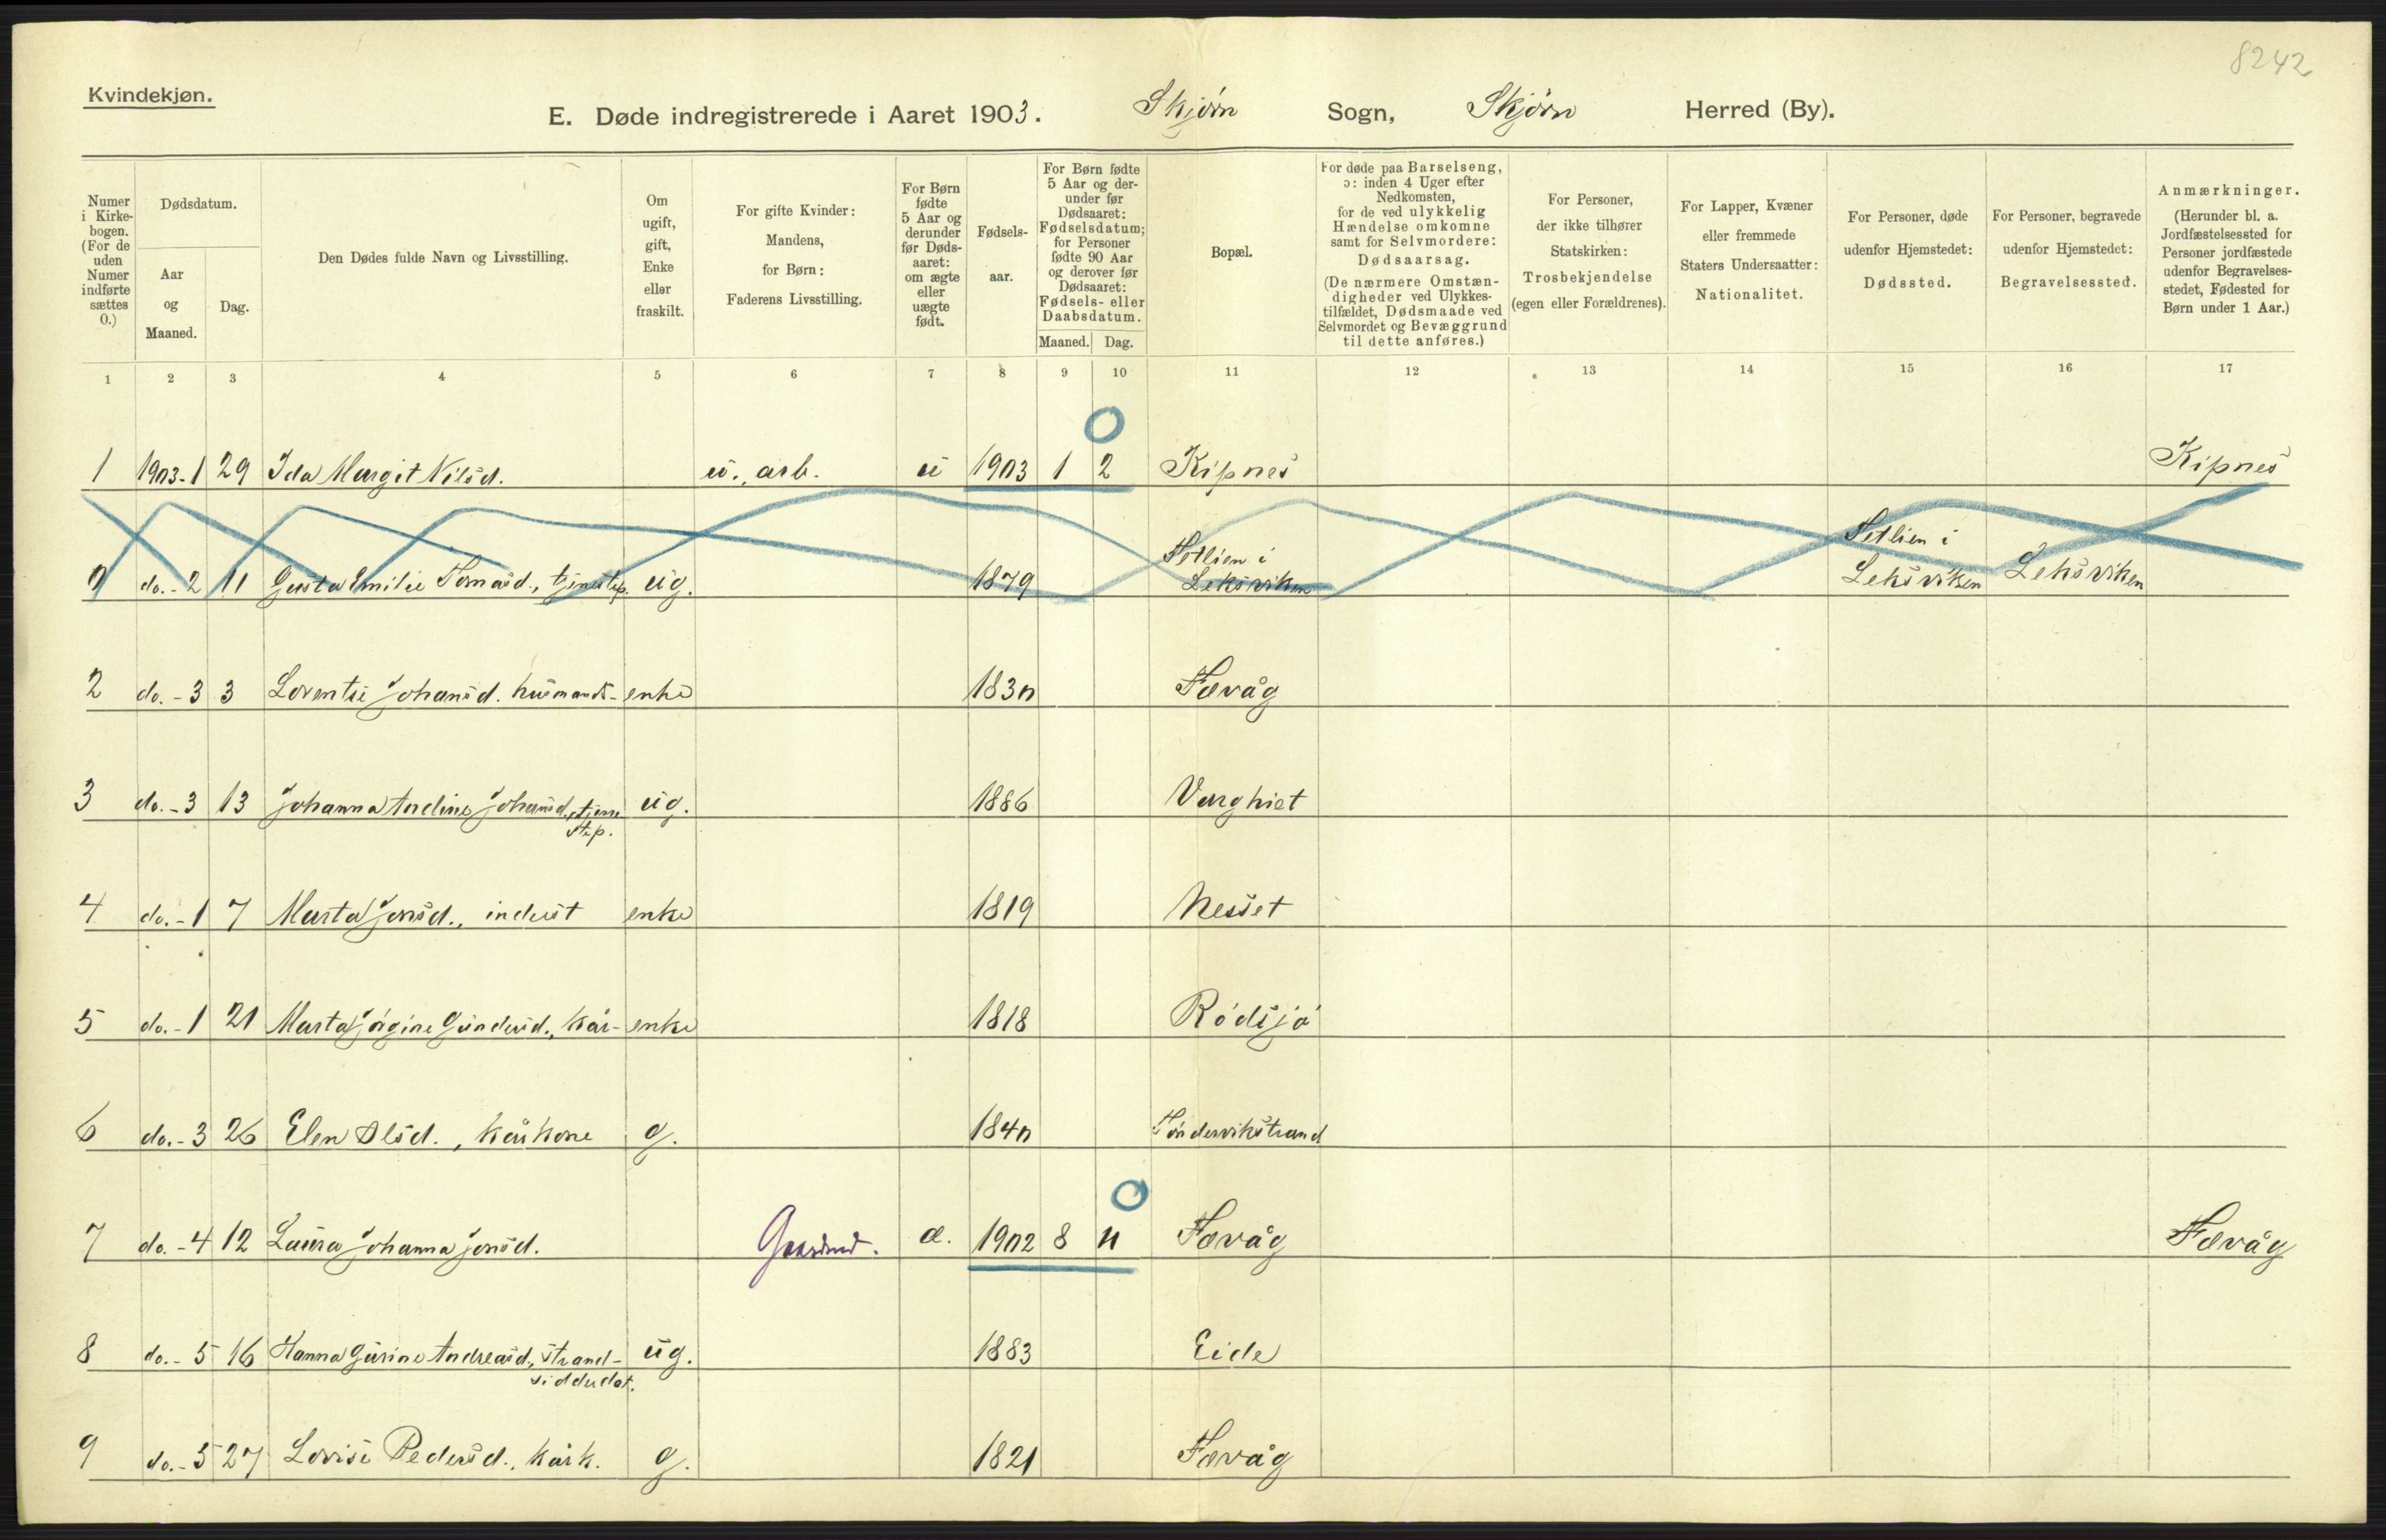 8242
Kvindekjøn.
E. Døde indregistrerede i Aaret 1903. Skjørn Sogn, Skjørn Herred (By).
Numer i Kirkebogen. (For de uden Numer indførte sættes 0.)
Dødsdatum.
Aar og Maaned.
Dag.
Den Dødes fulde Navn og Livsstilling.
Om ugift, gift, Enke eller fraskilt.
For gifte Kvinder: Mandens, for Børn: Faderens Livsstilling.
For Børn fødte 5 Aar og derunder før Dødsaaret: om ægte eller uægte født.
Fødselsaar.
For Børn fødte 5 Aar og derunder før Dødsaaret: Fødselsdatum; for Personer fødte 90 Aar og derover før Dødsaaret: Fødsels- eller Daabsdatum.
Maaned. Dag.
Bopæl.
For døde paa Barselseng, ɔ: inden 4 Uger efter Nedkomsten, for de ved ulykkelig Hændelse omkomne samt for Selvmordere: Dødsaarsag. (De nærmere Omstændigheder ved Ulykkestilfældet, Dødsmaade ved Selvmordet og Bevæggrund til dette anføres.)
For Personer, der ikke tilhører Statskirken: Trosbekjendelse (egen eller Forældrenes).
For Lapper, Kvæner eller fremmede Staters Undersaatter: Nationalitet.
For Personer, døde udenfor Hjemstedet: Dødssted.
For Personer, begravede udenfor Hjemstedet: Begravelsessted.
Anmærkninger. (Herunder bl. a. Jordfæstelsessted for Personer jordfæstede udenfor Begravelsesstedet, Fødested for Børn under 1 Aar.)
1 2 3 4 5 6 7 8 9 10 11 12 13 14 15 16 17
1 1903-1 29 Ida Margit Nilsd. u., arb. u 1903 1 2 Kipnes Kipnes
0 do.-2 11 Gusta Emilie Tomasd., tjenestep. ug. 1879 Setlien i Leksviken Setlien i Leksviken Leksviken
2 do.-3 3 Lorentse Johansd. husmands- enke 1830 Fævåg
3 do.-3 13 Johanna Andine Johansd., tjenestep. ug. 1886 Varghiet
4 do.-1 7 Marta Jonsd., inderst enke 1819 Nesset
5 do.-1 21 Marta Jørgine Gundersd., kår- enke 1818 Rødsjø
6 do.-3 26 Elen Olsd., kårkone g. 1840 Søndervikstrand
7 do.-4 12 Laura Johanna Jonsd. Gaardmd. æ. 1902 8 11 Fævåg Fævåg
8 do.-5 16 Hanna Gurine Andreasd., strandsidderdat. ug. 1883 Eide
9 do.-5 27 Lovise Pedersd., kårk. g. 1821 Fævåg